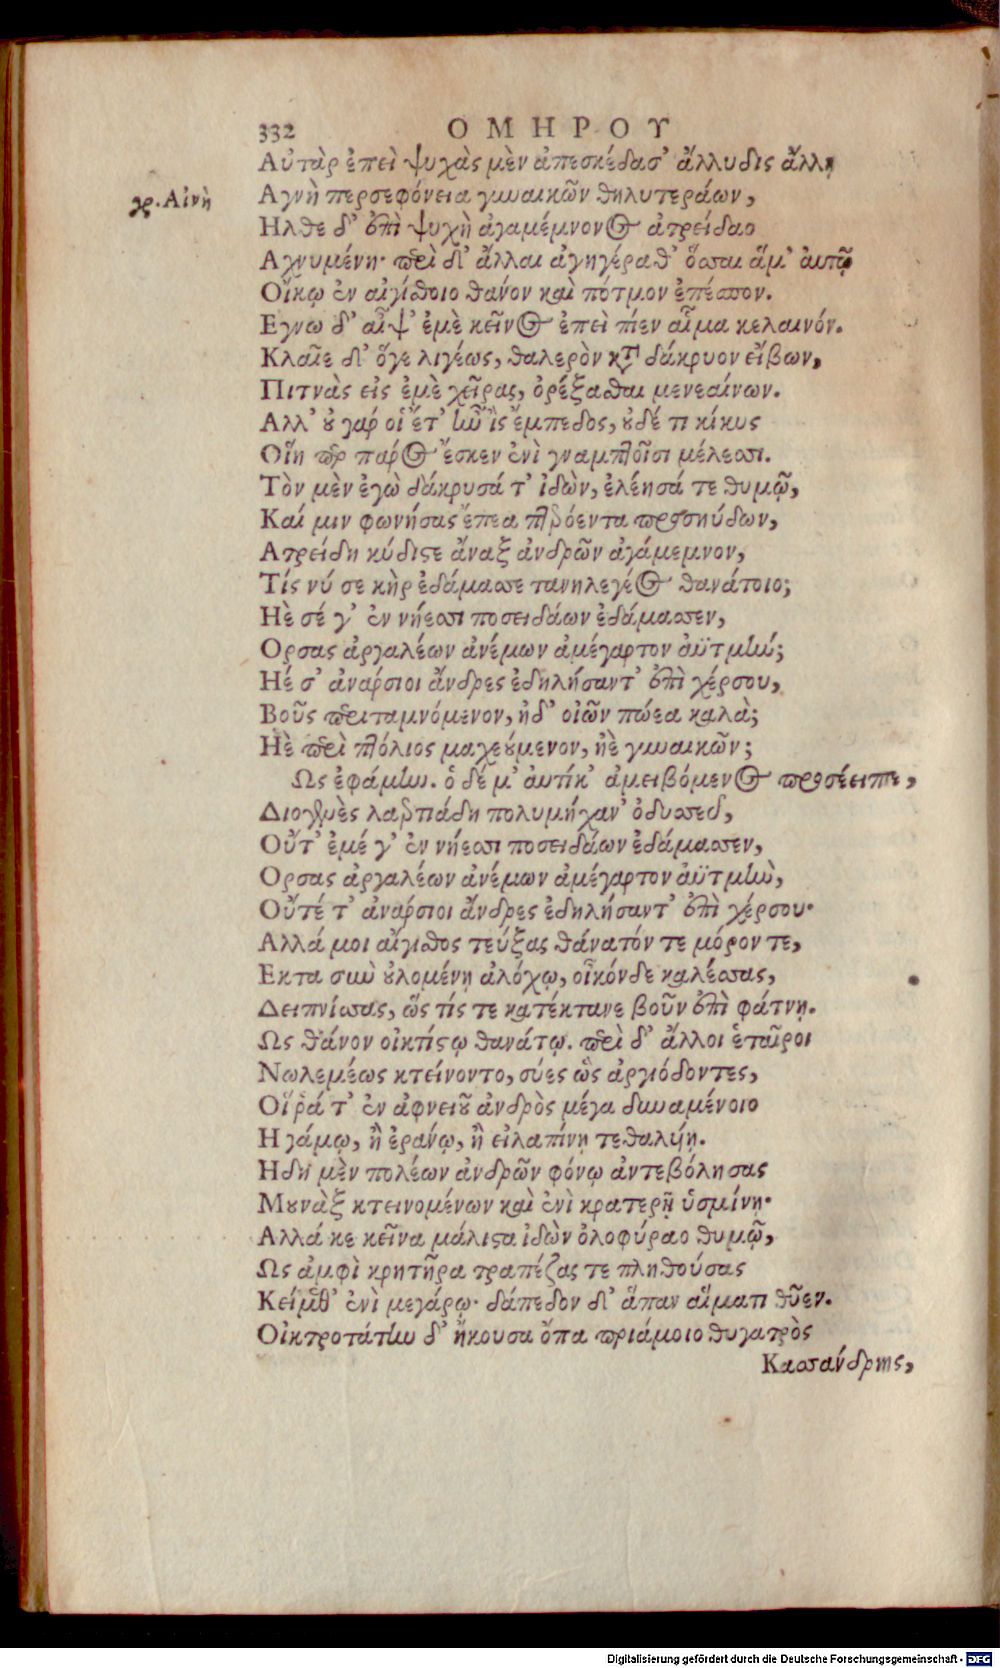 332 ΟΜΗΡΟΥ
Αὐτὰρ ἐπεὶ ψυχὰς μὲν ἀπεσκέδασ' ἄλλυδις ἄλλη
γρ. Αἰνὴ
Αγνὴ περσεφόνεια γυναικῶν θηλυτεράων,
Ηλθε δ' ἐπὶ ψυχὴ ἀγαμέμνονος ἀτρείδαο
Αχνυμένη· περὶ δ' ἄλλαι ἀγηγέραθ' ὅσσαι ἅμ' αὐτῷ
Οἴκῳ ἐν αἰγίσθοιο θάνον καὶ πότμον ἐπέσπον.
Εγνω δ' αἶψ' ἐμὲ κεῖνος ἐπεὶ πίεν αἷμα κελαινόν.
Κλαῖε δ' ὅγε λιγέως, θαλερὸν κτ̀ δάκρυον εἴβων,
Πιτνὰς εἰς ἐμὲ χεῖρας, ὀρέξασθαι μενεαίνων.
Αλλ' οὐ γάρ οἱ ἔτ' ἦν ἲς ἔμπεδος, οὐδέ τι κίκυς
Οἵη περ πάρος ἔσκεν ἐνὶ γναμπτοῖσι μέλεσσι.
Τὸν μὲν ἐγὼ δάκρυσά τ' ἰδὼν, ἐλέησά τε θυμῷ,
Καί μιν φωνήσας ἔπεα πτερόεντα προσηύδων,
Ατρείδη κύδιστε ἄναξ ἀνδρῶν ἀγάμεμνον,
Τίς νύ σε κὴρ ἐδάμασσε τανηλεγέος θανάτοιο;
Ηὲ σέ γ' ἐν νήεσσι ποσειδάων ἐδάμασσεν,
Ορσας ἀργαλέων ἀνέμων ἀμέγαρτον ἀϋτμήν;
Ηέ σ' ἀνάρσιοι ἄνδρες ἐδηλήσαντ' ἐπὶ χέρσου,
Βοῦς περιταμνόμενον, ἠδ' οἰῶν πώεα καλὰ;
Ηὲ περὶ πτόλιος μαχεούμενον, ἠὲ γυναικῶν;
Ως ἐφάμην. ὁ δέ μ' αὐτίκ' ἀμειβόμενος προσέειπε,
Διογενὲς λαερτιάδη πολυμήχαν' ὀδυσσεῦ,
Οὔτ' ἐμέ γ' ἐν νήεσσι ποσειδάων ἐδάμασσεν,
Ορσας ἀργαλέων ἀνέμων ἀμέγαρτον ἀϋτμὴν,
Οὔτέ τ' ἀνάρσιοι ἄνδρες ἐδηλήσαντ' ἐπὶ χέρσου·
Αλλά μοι αἴγισθος τεύξας θάνατόν τε μόρον τε,
Εκτα σὺν οὐλομένῃ ἀλόχῳ, οἶκόνδε καλέσσας,
Δειπνίσσας, ὥς τίς τε κατέκτανε βοῦν ἐπὶ φάτνῃ.
Ως θάνον οἰκτίστῳ θανάτῳ. περὶ δ' ἄλλοι ἑταῖροι
Νωλεμέως κτείνοντο, σύες ὣς ἀργιόδοντες,
Οἵ ῥά τ' ἐν ἀφνειοῦ ἀνδρὸς μέγα δυναμένοιο
Η γάμῳ, ἢ ἐράνῳ, ἢ εἰλαπίνῃ τεθαλυίῃ.
Ηδη μὲν πολέων ἀνδρῶν φόνῳ ἀντεβόλησας
Μουνὰξ κτεινομένων καὶ ἐνὶ κρατερῇ ὑσμίνῃ·
Αλλά κε κεῖνα μάλιστα ἰδὼν ὀλοφύραο θυμῷ,
Ως ἀμφὶ κρητῆρα τραπέζας τε πληθούσας
Κείμεθ' ἐνὶ μεγάρῳ· δάπεδον δ' ἅπαν αἵματι θῦεν.
Οἰκτροτάτην δ' ἤκουσα ὄπα πριάμοιο θυγατρὸς
Κασσάνδρης,
Digitalisierung gefördert durch die Deutsche Forschungsgemeinschaft - DFG